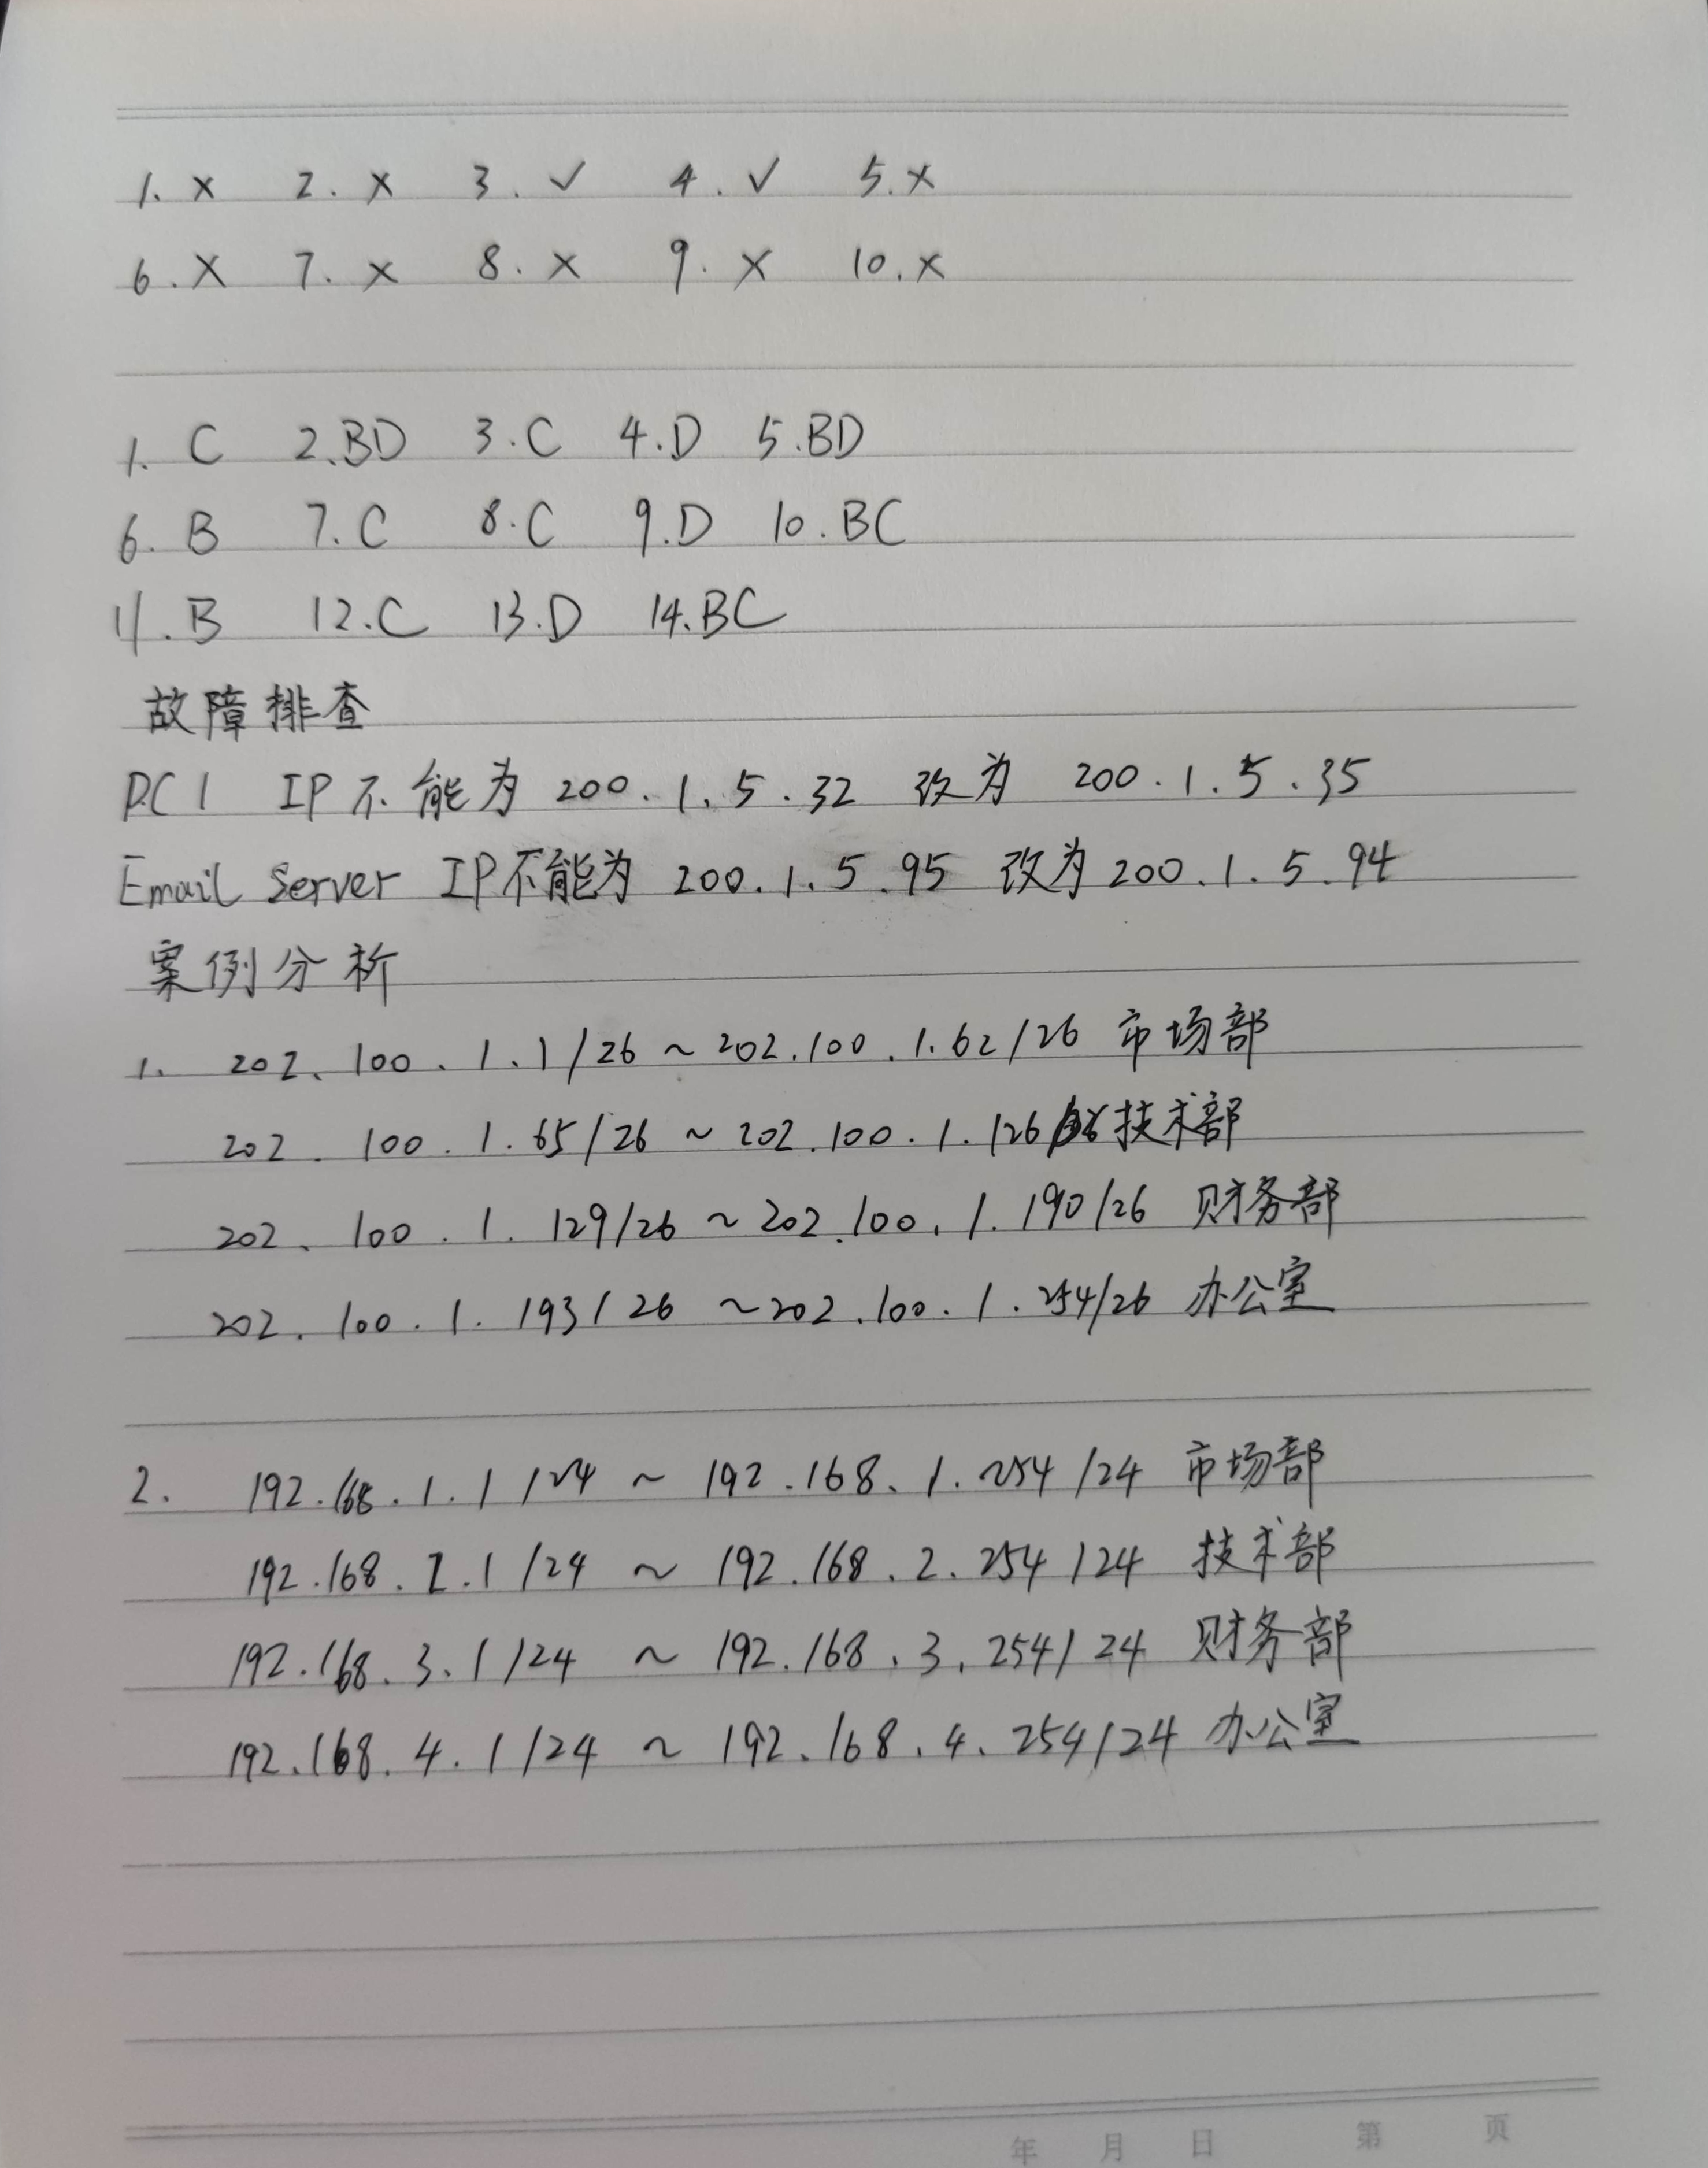 1. × 2. × 3. ✓ 4. ✓ 5. ×
6. × 7. × 8. × 9. × 10. ×
1. C 2. BD 3. C 4. D 5. BD
6. B 7. C 8. C 9. D 10. BC
11. B 12. C 13. D 14. BC
故障排查
PC1 IP不能为 200.1.5.32 改为 200.1.5.35
Email Server IP不能为 200.1.5.95 改为 200.1.5.94
案例分析
1. 202.100.1.1/26 ~ 202.100.1.62/26 市场部
202.100.1.65/26 ~ 202.100.1.126 技术部
202.100.1.129/26 ~ 202.100.1.190/26 财务部
202.100.1.193/26 ~ 202.100.1.254/26 办公室
2. 192.168.1.1/24 ~ 192.168.1.254/24 市场部
192.168.2.1/24 ~ 192.168.2.254/24 技术部
192.168.3.1/24 ~ 192.168.3.254/24 财务部
192.168.4.1/24 ~ 192.168.4.254/24 办公室
年 月 日 第 页